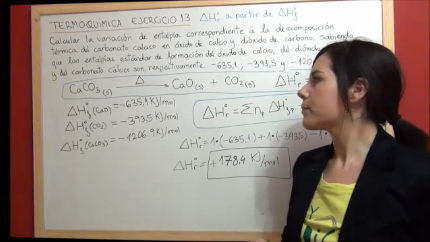 TERMOQUÍMICA EJERCICIO 13 ΔH°r a partir de ΔH°f
Calcular la variación de entalpía correspondiente a la descomposición
térmica del carbonato cálcico en óxido de calcio y dióxido de carbono. Sabiendo
que las entalpías estándar de formación del óxido de calcio, del dióxido
y del carbonato cálcico son, respectivamente -635,1, -393,5 y -120
CaCO3(s) Δ→ CaO(s) + CO2(g) ΔH°
ΔH°f(CaO) = -635,1 KJ/mol
ΔH°f(CO2) = -393,5 KJ/mol
ΔH°f(CaCO3) = -1206,9 KJ/mol
ΔH°r = Σnp ΔH°f,p
ΔH°r = 1·(-635,1) + 1·(-393,5) - 1·
ΔH°r = +178,4 KJ/mol